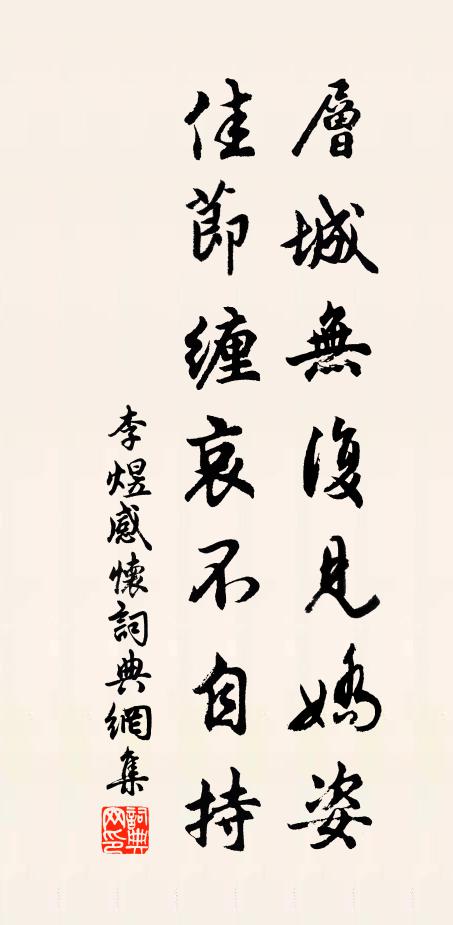 層城無復見嬌姿
佳節纏哀不自持
李煜感懷詞典網集
詞典
网印